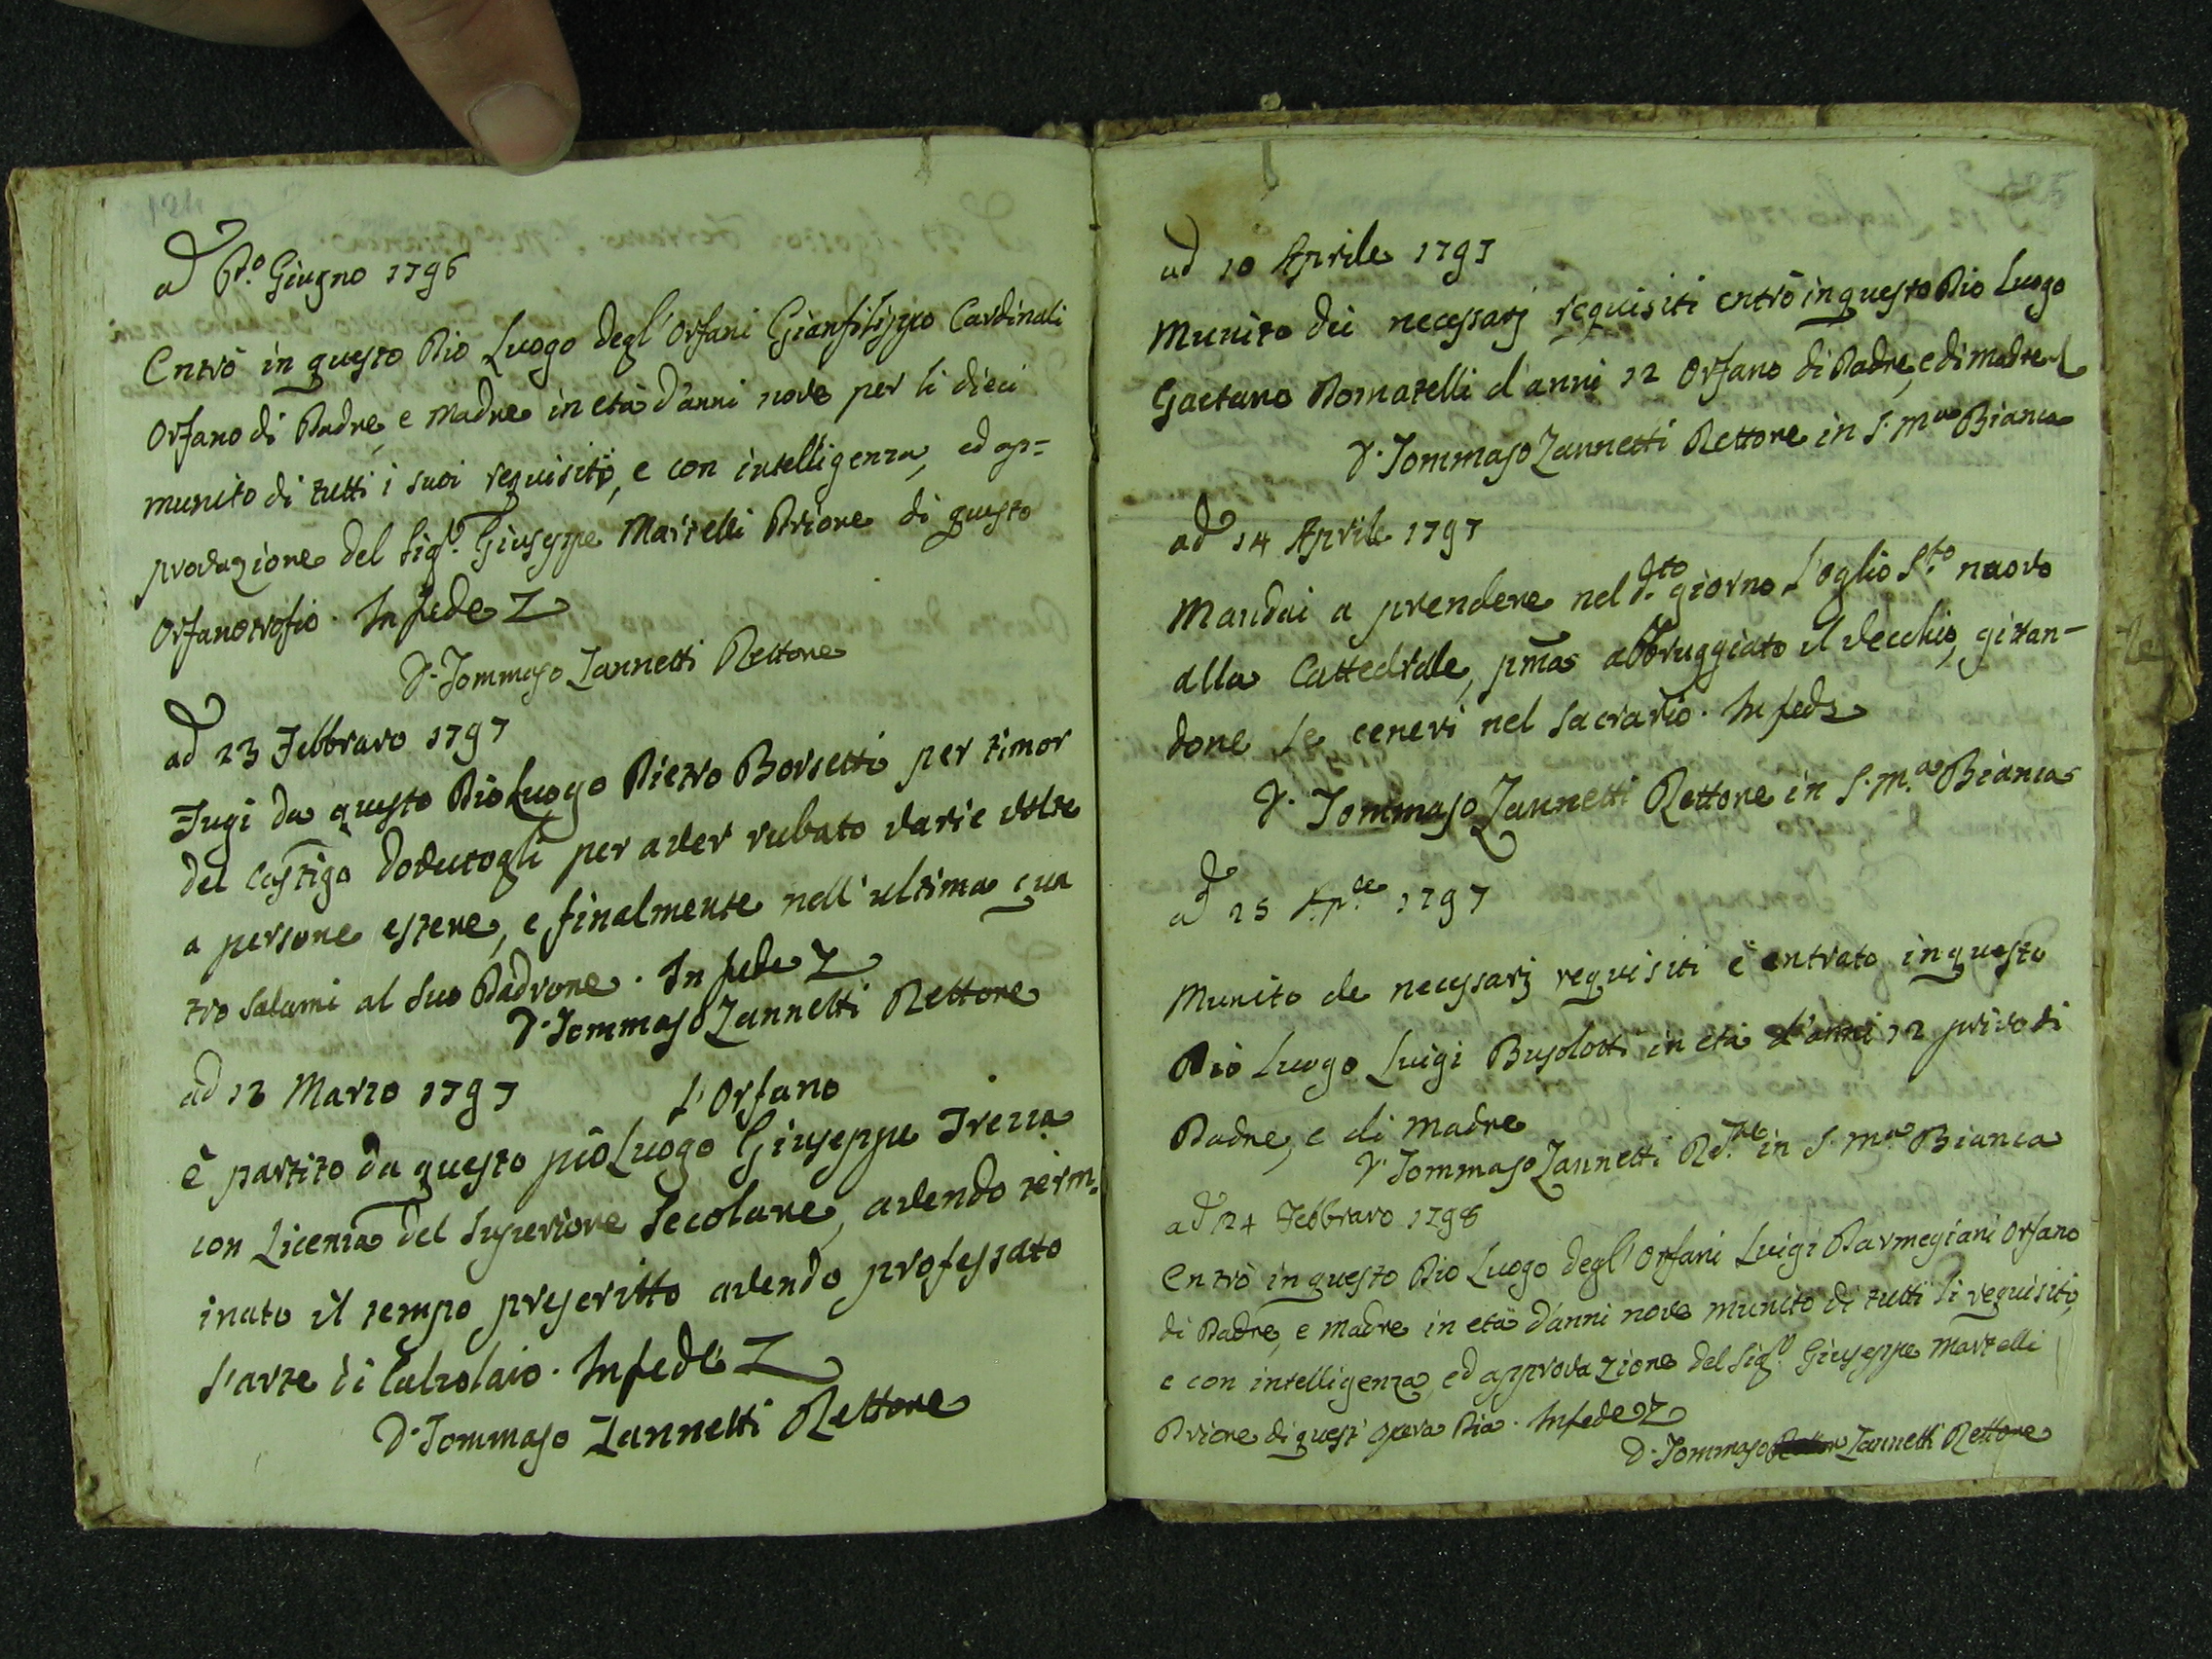 124
ad P.mo Giugno 1796
Entrò in questo Pio Luogo degl'Orfani Gianfilippo Cardinali
Orfano di Padre, e Madre in età d'anni nove per li dieci
munito di tutti i suoi requisiti, e con intelligenza, ed ap=
provazione del Sig.r Giuseppe Martelli Priore di questo
Orfanotrofio. In fede
D. Tommaso Zannetti Rettore
ad 23 Febbraro 1797
Fugi da questo Pio Luogo Pietro Borsetti per timor
del castigo dovutogli per aver rubato varie volte
a persone estere, e finalmente nell'ultima qua
tro salami al suo Padrone. In fede
D. Tommaso Zannetti Rettore
ad 12 Marzo 1797
l'Orfano
è partito da questo pio Luogo Giuseppe Trezza
con Licenza del Superiore Secolare, avendo term.
inato il tempo prescritto avendo professato
l'arte di Calzolaio. In fede
D. Tommaso Zannetti Rettore
125
ad 10 Aprile 1797
Munito dei necessarj requisiti entrò in questo Pio Luogo
Gaetano Pomatelli d'anni 12 Orfano di Padre, e di Madre
D. Tommaso Zannetti Rettore in S. M.a Bianca
ad 14 Aprile 1797
Mandai a prendere nel d.to giorno l'oglio S.to nuovo
alla Cattedrale, pma abbruggiato il vecchio, gittan-
done le ceneri nel sacrario. In fede
D. Tommaso Zannetti Rettore in S. M.a Bianca
ad 25 Ap.le 1797
Munito de necessarj requisiti è entrato in questo
Pio Luogo Luigi Busolotti in età d'anni 12 privo di
Padre, e di Madre
D. Tommaso Zannetti Re.re in S. M.a Bianca
ad 24 Febbraro 1798
Entrò in questo Pio Luogo degl'Orfani Luigi Parmegiani Orfano
di Padre, e Madre in età d'anni nove munito di tutti li requisiti,
e con intelligenza, ed approvazione del Sig.r Giuseppe Martelli
Priore di quest'opera Pia. In fede
D. Tommaso Zannetti Rettore